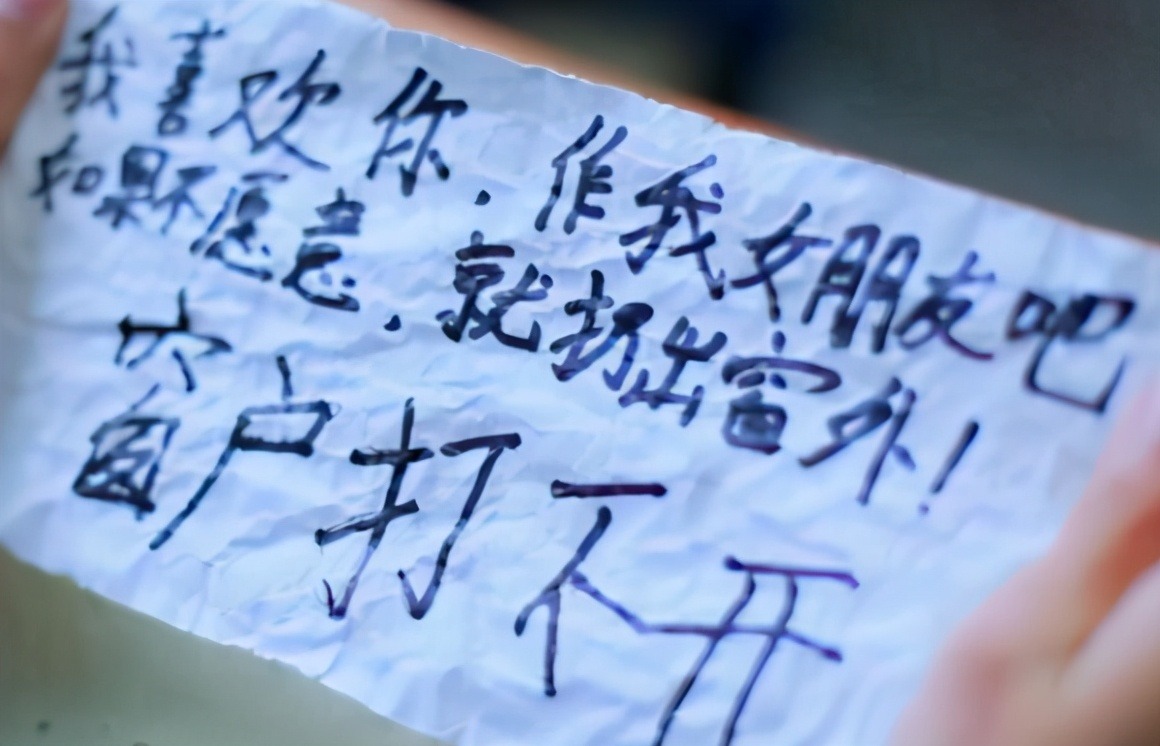 我喜欢你.作我女朋友吧
如果不愿意.就扔出窗外!
窗户打不开